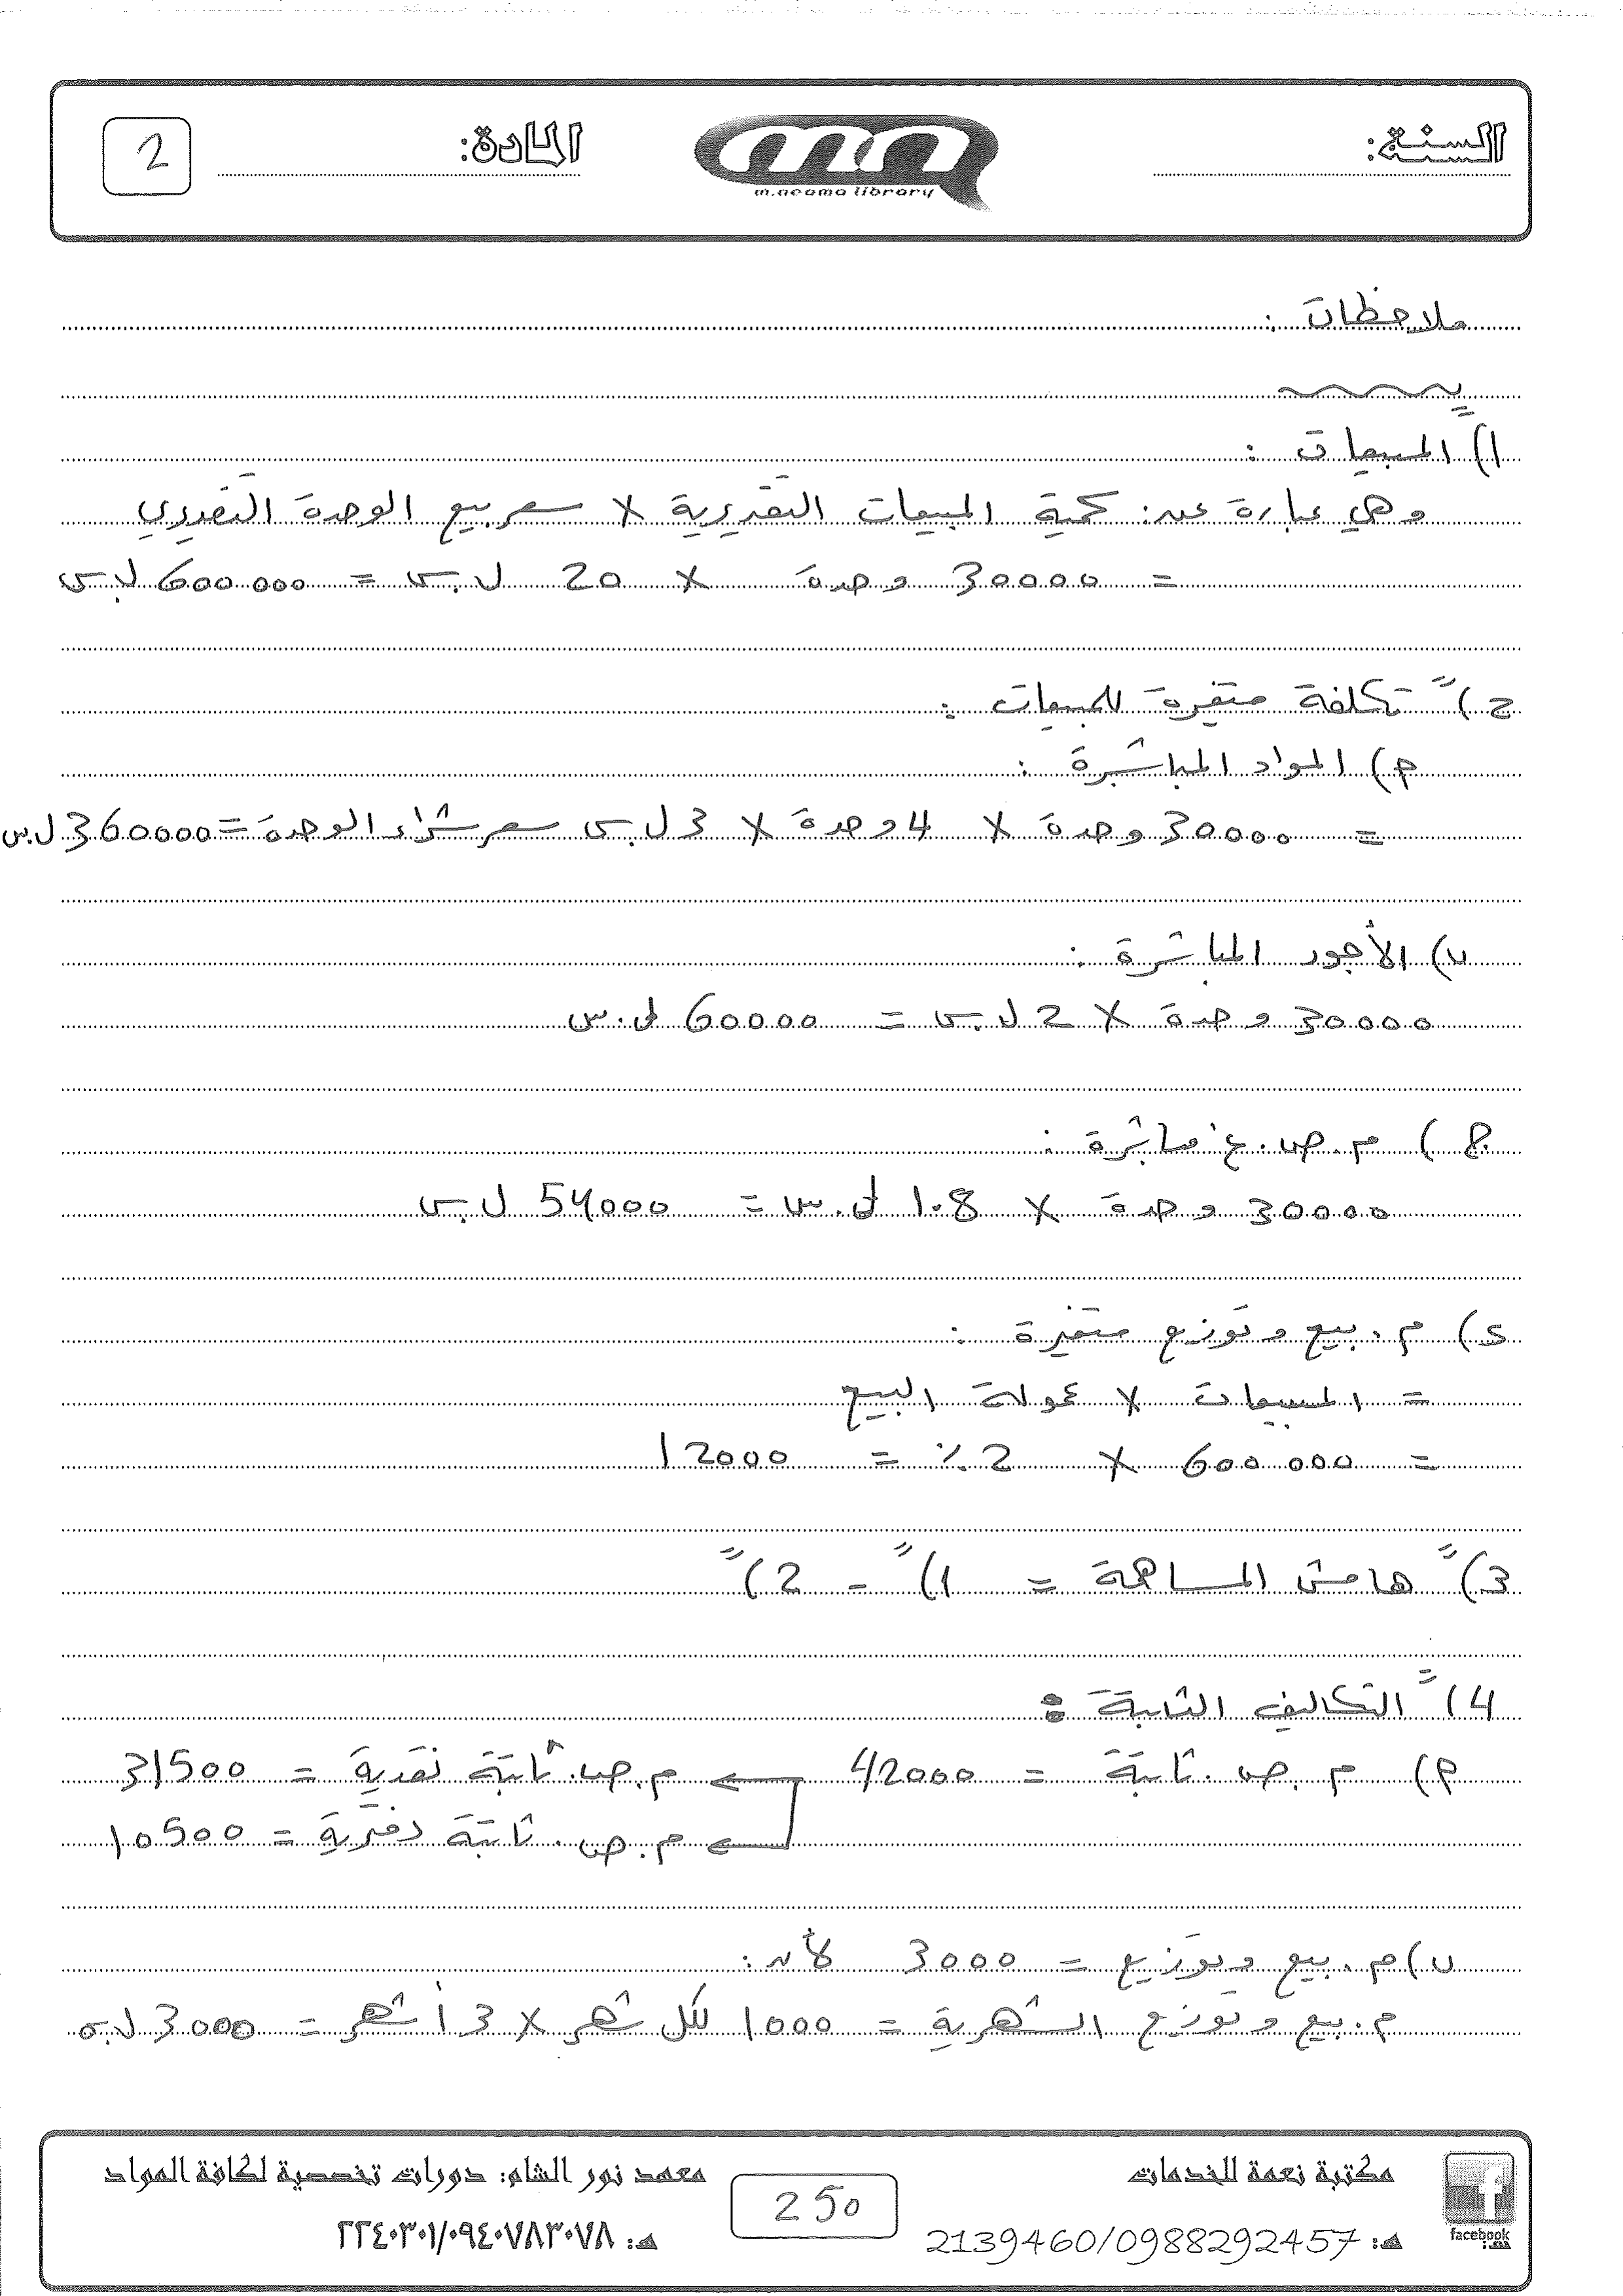 السنة:
المادة:
2
m.neama library
ملاحظات :
1) المبيعات :
وهي عبارة عن: كمية المبيعات التقديرية × سعر بيع الوحدة التقديري
= 30000 وحدة × 20 ل.س = 600000 ل.س
ح) تكلفة متغيرة للمبيعات :
م) المواد المباشرة :
= 30000 وحدة × 4 وحدة × 3 ل.س سعر شراء الوحدة = 360000 ل.س
ں) الأجور المباشرة :
30000 وحدة × 2 ل.س = 60000 ل.س
ج) م.ص.غ مباشرة :
30000 وحدة × 1.8 ل.س = 54000 ل.س
د) م. بيع وتوزيع متغيرة :
= المبيعات × عمولة البيع
= 600000 × 2٪ = 12000
3) هامش المساهمة = 1) - 2)
4) التكاليف الثابتة :
م) م.ص. ثابتة = 42000 ← م.ص. ثابتة نقدية = 31500
← م.ص. ثابتة دفترية = 10500
ں) م. بيع وتوزيع = 3000 لأن:
م. بيع وتوزيع الشهرية = 1000 لكل شهر × 3 أشهر = 3000 ل.س
مكتبة نعمة للخدمات
هـ: 2139460/0988292457
facebook
250
معهد نور الشام: دورات تخصصية لكافة المواد
هـ: ٢٢٤٠٣٠١/٠٩٤٠٧٨٣٠٧٨